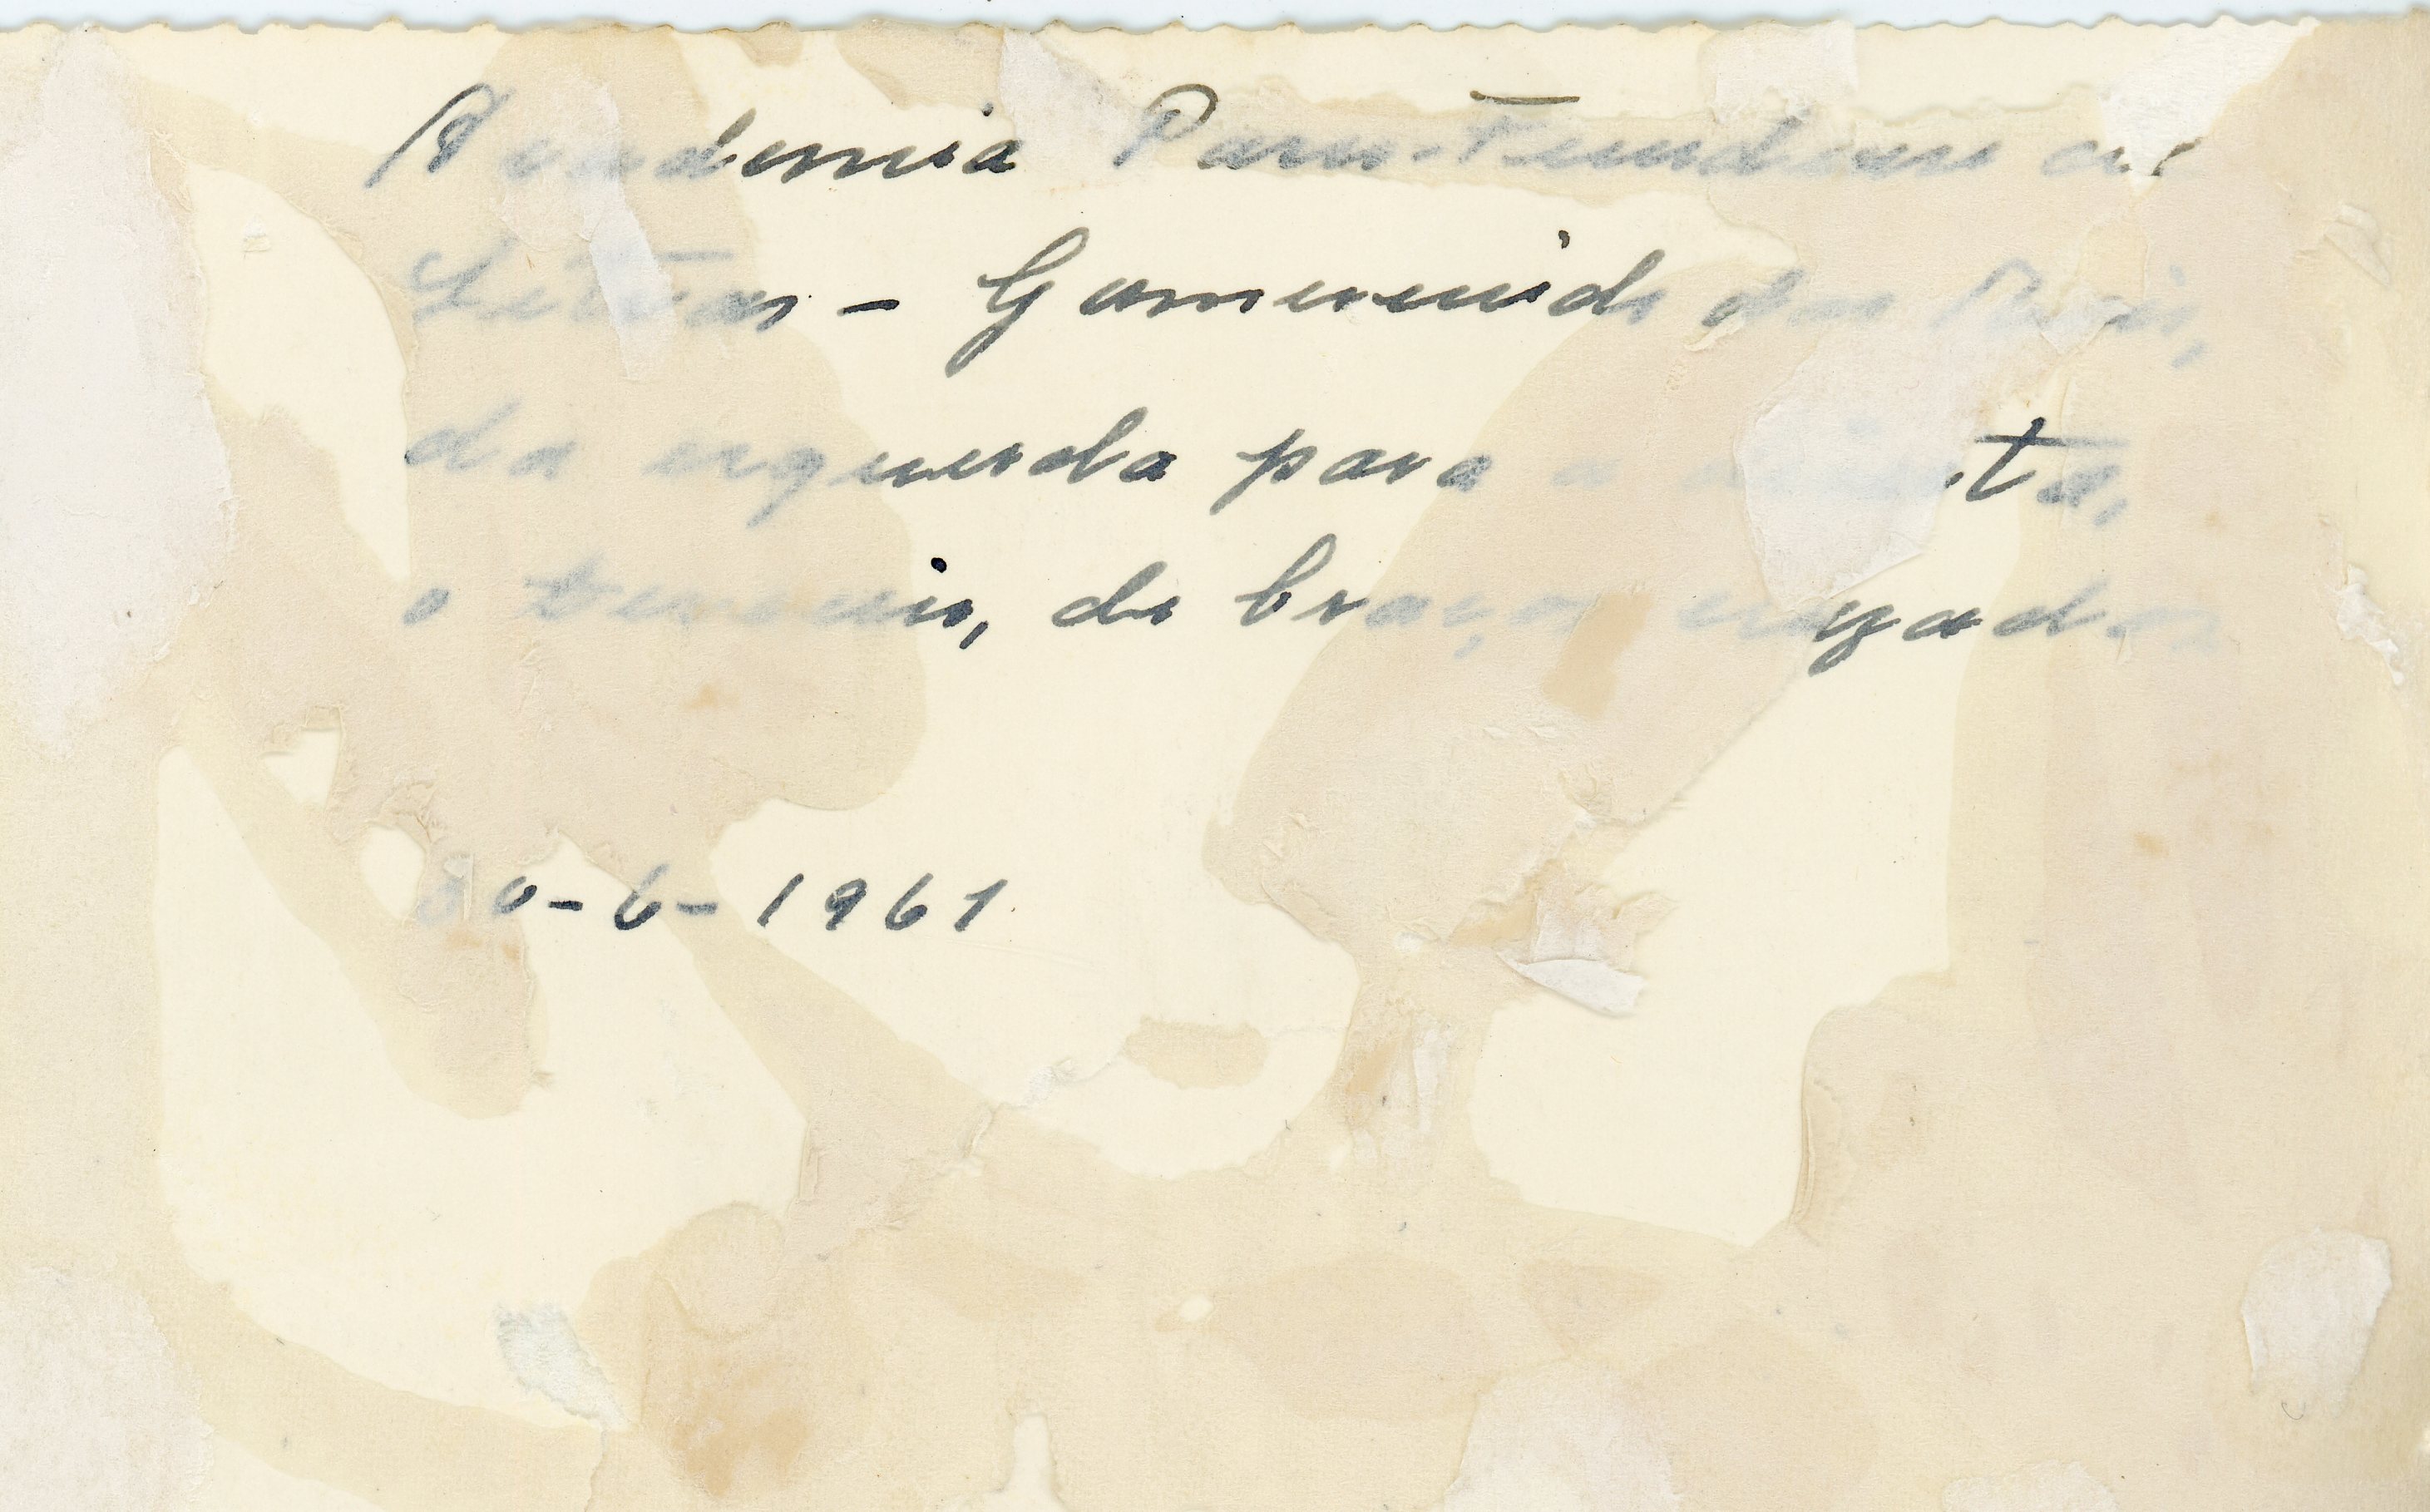 Academia Passo-Fundense de
Letras - Gomercindo dos Reis,
da esquerda para a direita,
o terceiro, de braços cruzados
30-6-1961